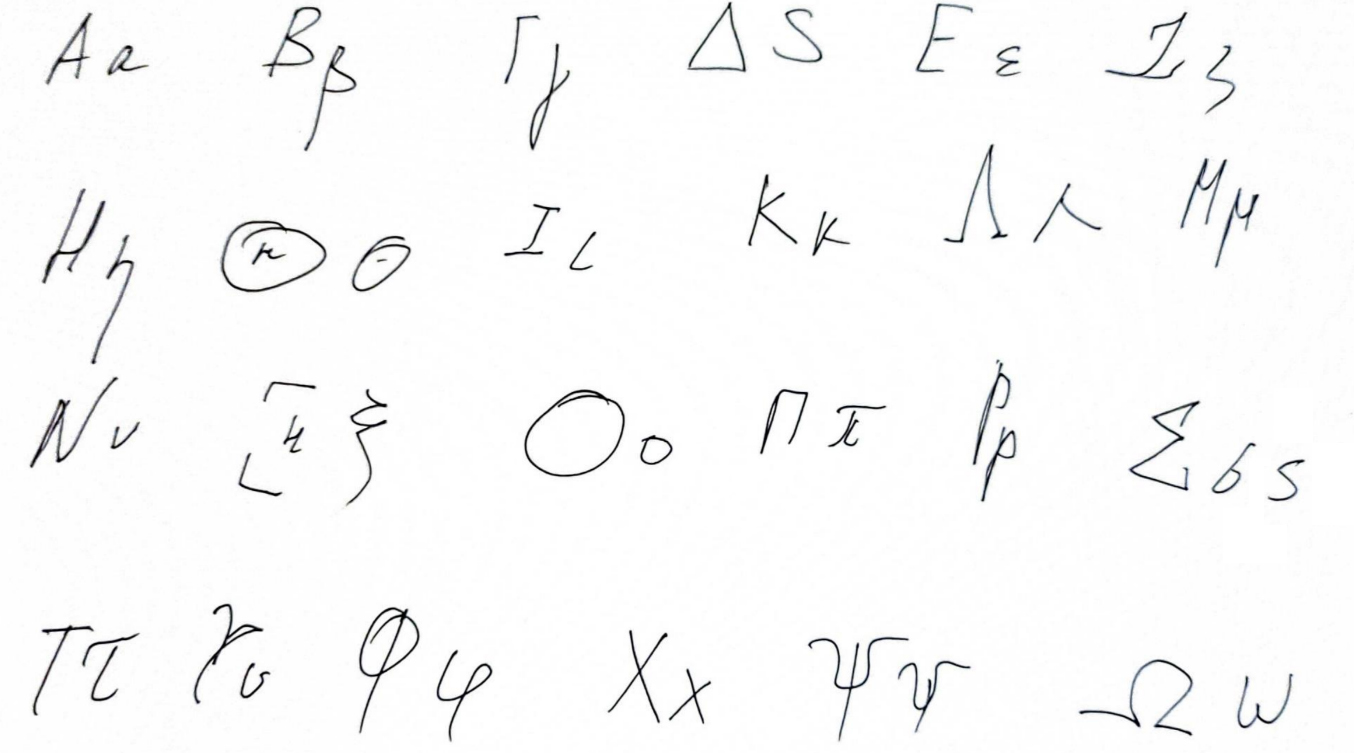 Αα Ββ Γγ Δδ Εε Ζζ
Ηη Θθ Ιι Κκ Λλ Μμ
Νν Ξξ Οο Ππ Ρρ Σσς
Ττ Υυ Φφ Χχ Ψψ Ωω